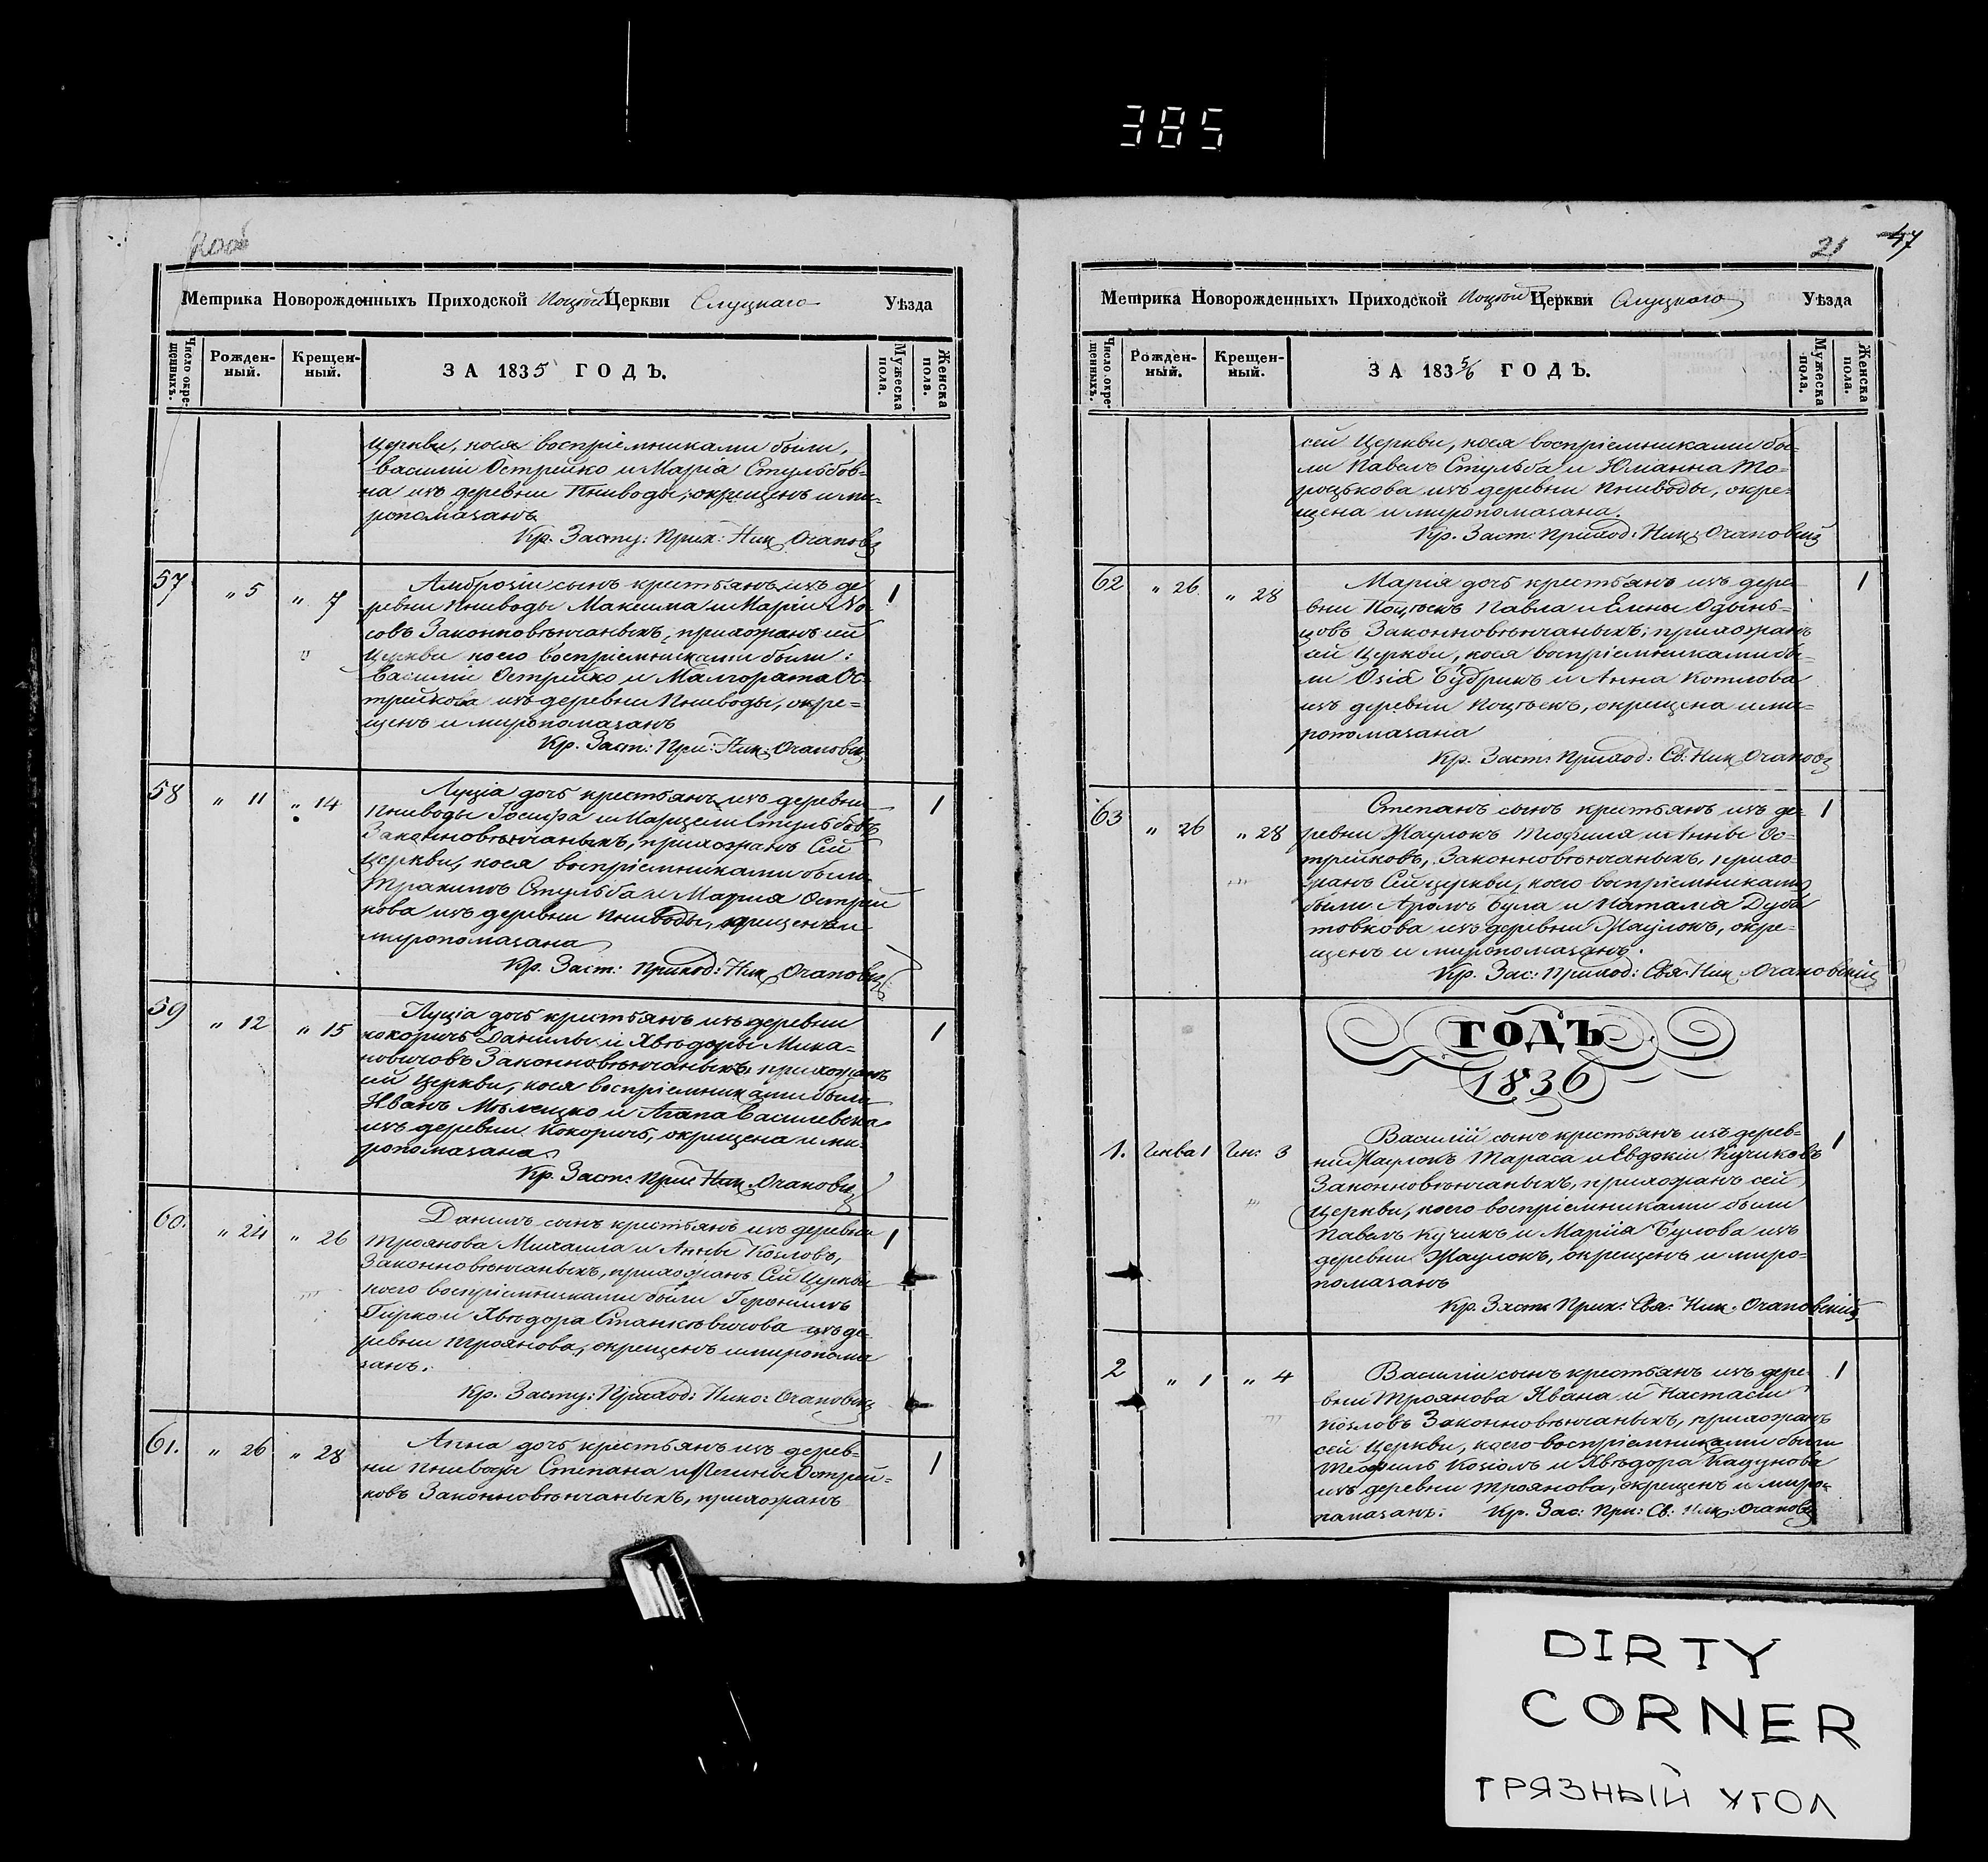 385
Метрика Новорожденныхъ Приходской Церкви Слуцкаго Уѣзда
Число окре-
щенныхъ.
Рожден-
ный.
Крещен-
ный.
ЗА 1835 ГОДЪ.
Мужеска
пола.
Женска
пола.
Церкви, коея воспріемниками были,
Василій Острейко и Марія Стульбов-
на изъ деревни Пниводы, окрещенъ и ми-
ропомазанъ
Кр. Засту: Прих: Ник Очаповс
57 „ 5 „ 7 Амброзій сынъ крестьянъ изъ де 1
ревни Пниводы Максима и Маріи
совъ Законновѣнчаныхъ, прихожанъ сей
Церкви коего воспріемниками были:
Василій Острейко и Малгората Ос-
трейкова изъ деревни Пниводы, окре-
щенъ и миропомазанъ
Кр. Заст: При: Ник: Очаповс
58 „ 11 „ 14 Луція дочь крестьянъ изъ деревни 1
Пниводы Іосифа и Марцели Стульбовъ
Законновѣнчаныхъ, прихожанъ Сей
Церкви, коея воспріемниками были
Стульба и Мария Острей
кова изъ деревни Пниводы, крещена и
миропомазана
Кр. Заст: Приход: Ник Очаповс
59 „ 12 „ 15 Луція дочь крестьянъ изъ деревни 1
Кокоричъ Данилы и Хвѣдоры Миха-
новичовъ Законновѣнчаныхъ, прихожанъ
сей Церкви, коея воспріемниками были
Иванъ Мѣлешко и Агапа Василевска
изъ деревни Кокоричъ, окрещена и ми-
ропомазана
Кр. Заст: При Ник Очаповс
60. „ 24 „ 26 Данилъ сынъ крестьянъ изъ деревни 1
Троянова Михаила и Анны Козловъ,
Законновѣнчаныхъ, прихожанъ Сей Церкви
коего воспріемниками были Геронимъ
Гирко и Хвѣдора Станкѣвичова изъ де-
ревни Троянова, окрещенъ и миропома
занъ.
Кр. Засту: Приход: Нико: Очаповс
61. „ 26 „ 28 Анна дочь крестьянъ изъ дерев- 1
ни Пниводы Степана и Регины Острей-
ковъ Законновѣнчаныхъ, прихожанъ
21 47
Метрика Новорожденныхъ Приходской Церкви Слуцкаго Уѣзда
Число окре-
щенныхъ.
Рожден-
ный.
Крещен-
ный.
ЗА 183 5/6 ГОДЪ.
Мужеска
пола.
Женска
пола.
сей Церкви, коея воспріемниками бы-
ли Павелъ Стульба и Юліанна То-
роцькова изъ деревни Пниводы, окре-
щена и миропомазана.
Кр. Заст: Приход: Ник: Очаповскій
62 „ 26 „ 28 Марія дочь крестьянъ изъ дере 1
вни Поцѣекъ Павла и Елены Одынь-
цовъ Законновѣнчаныхъ, прихожанъ
сей Церкви, коея воспріемниками бы-
ли Бубрикъ и Анна Котлова
изъ деревни Поцѣекъ, окрещена и ми-
ропомазана
Кр. Заст: Приход: Св: Ник Очаповс
63 „ 26 „ 28 Степанъ сынъ крестьянъ изъ де- 1
ревни Жаулокъ Теофиля и Анны Ос-
трейковъ, Законновѣнчаныхъ, прихо-
жанъ Сей церкви, коего воспріемниками
были Була и Наталія Дуба
товкова изъ деревни Жаулокъ, окре-
щенъ и миропомазанъ.
Кр. Зас: Приход: Свя: Ник: Очаповскій
ГОДЪ
1836
1. Генва 1 Ген: 3 Василій сынъ крестьянъ изъ дерев- 1
ни Жаулокъ Тараса и Евдокіи Кучиковъ
Законновѣнчаныхъ, прихожанъ сей
Церкви, коего воспріемниками были
Павелъ Кучикъ и Марія Булова изъ
деревни Жаулокъ, окрещенъ и миро-
помазанъ
Кр. Заст: Прих: Свя: Ник: Очаповскій
2 „ 1 „ 4 Василій сынъ крестьянъ изъ дере- 1
вни Троянова Ивана и Настасіи
Козловъ Законновѣнчаныхъ, прихожанъ
сей Церкви, коего воспріемниками были
Теофиль Козіолъ и Хвѣдора Кадунова
изъ деревни Троянова, окрещенъ и миро-
памазанъ: Кр. Зас: При: Св: Ник: Очаповс
DIRTY
CORNER
ГРЯЗНЫЙ УГОЛ